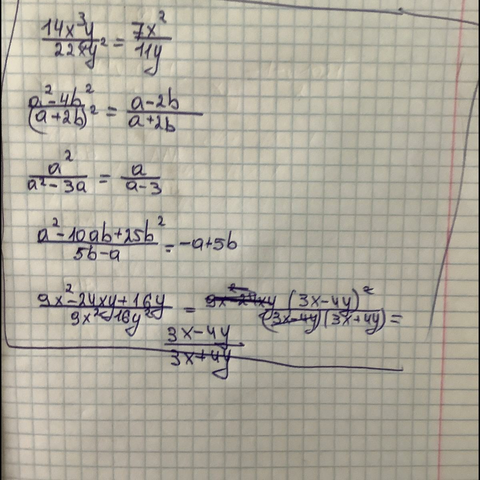 14x³y/22xy² = 7x²/11y
a²-4b²/(a+2b)² = a-2b/a+2b
a²/a²-3a = a/a-3
a²-10ab+25b²/5b-a = -a+5b
9x²-24xy+16y/9x²-16y² = (3x-4y)²/(3x-4y)(3x+4y) =
3x-4y/3x+4y